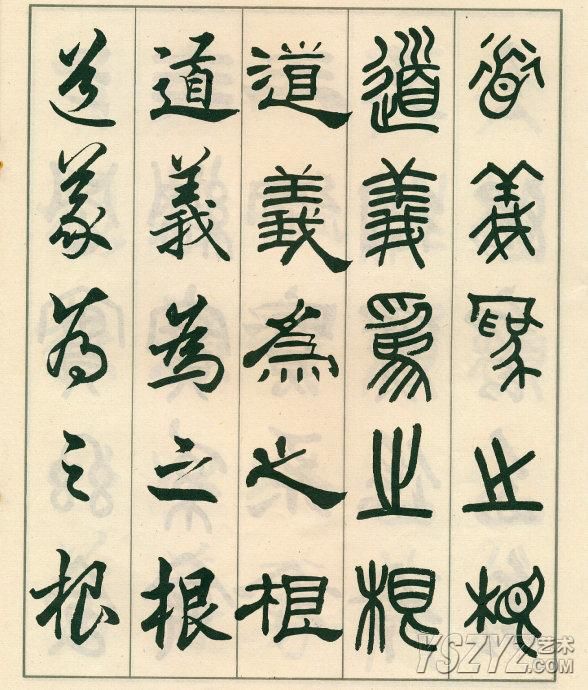 道義為之根
道義為之根
道義為之根
道義為之根
道義為之根
YSZYZ艺术
.COM